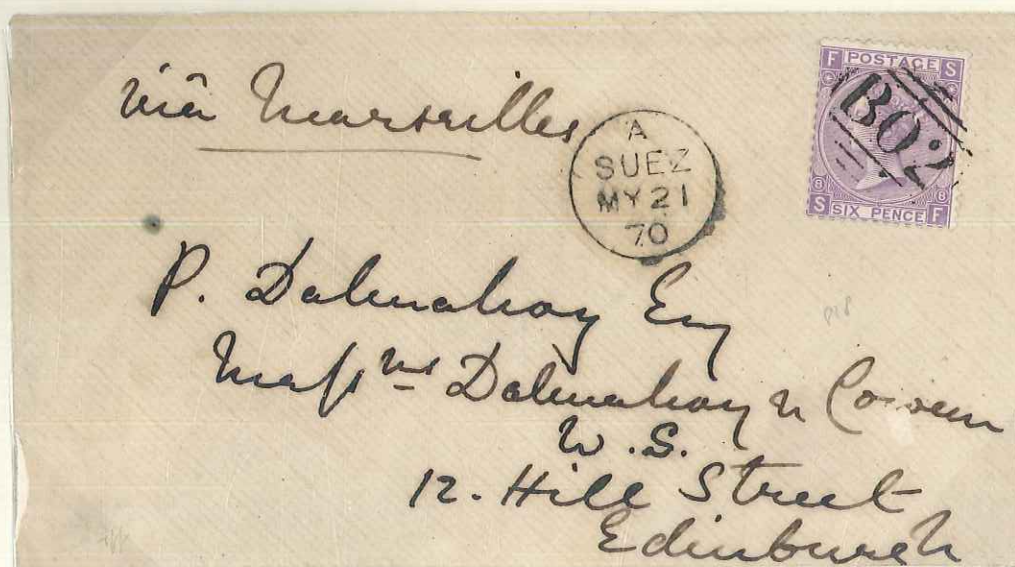 viâ Marseilles
A
SUEZ
MY 21
70
F POSTAGE S
B02
8 8
S SIX PENCE F
P. Dalmahoy Esq
Messrs Dalmahoy & Cowan
W.S.
12. Hill Street
Edinburgh